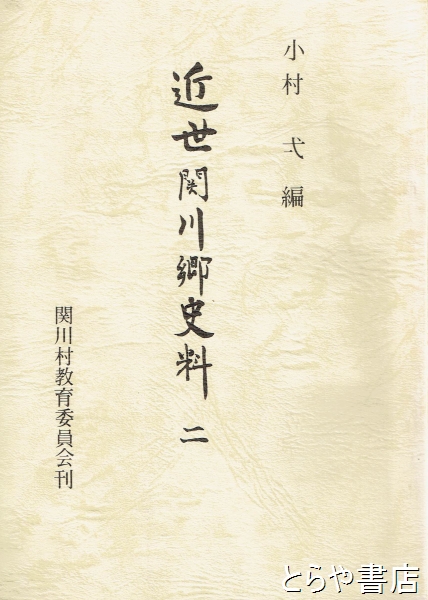 小村 弌 編
近世関川郷史料 二
関川村教育委員会刊
とらや書店